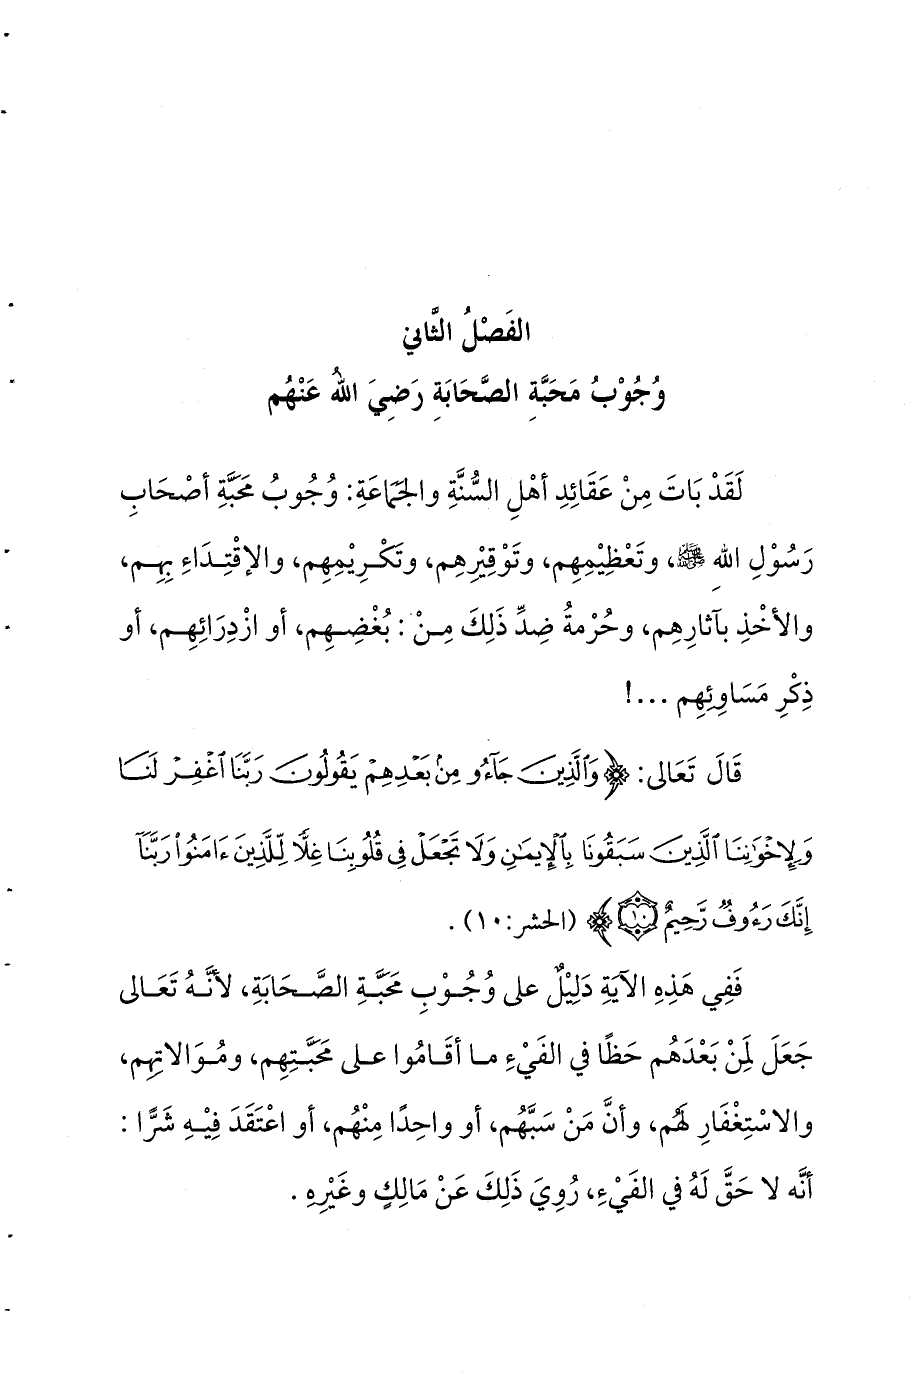 الفَصْلُ الثَّاني
وُجُوْبُ مَحَبَّةِ الصَّحَابَةِ رَضِيَ اللهُ عَنْهُم
لَقَدْ بَاتَ مِنْ عَقَائِدِ أهْلِ السُّنَّةِ والجَمَاعَةِ: وُجُوبُ مَحَبَّةِ أصْحَابِ
رَسُوْلِ اللهِ ﷺ، وتَعْظِيْمِهِم، وتَوْقِيْرِهِم، وتَكْرِيْمِهِم، والإقْتِدَاءِ بِهِم،
والأخْذِ بآثارِهِم، وحُرْمةُ ضِدِّ ذَلِكَ مِنْ: بُغْضِهِم، أو ازْدِرَائِهِم، أو
ذِكْرِ مَسَاوِئِهِم ...!
قَالَ تَعَالى: ﴿وَٱلَّذِينَ جَآءُو مِنۢ بَعْدِهِمْ يَقُولُونَ رَبَّنَا ٱغْفِرْ لَنَا
وَلِإِخْوَٰنِنَا ٱلَّذِينَ سَبَقُونَا بِٱلْإِيمَٰنِ وَلَا تَجْعَلْ فِى قُلُوبِنَا غِلًّا لِّلَّذِينَ ءَامَنُوا۟ رَبَّنَآ
إِنَّكَ رَءُوفٌ رَّحِيمٌ ١٠﴾ (الحشر:١٠).
فَفِي هَذِهِ الآيَةِ دَلِيْلٌ على وُجُوْبِ مَحَبَّةِ الصَّحَابَةِ، لأنَّهُ تَعَالى
جَعَلَ لِمَنْ بَعْدَهُم حَظًّا في الفَيْءِ ما أقَامُوا على مَحَبَّتِهِم، ومُوَالاتِهِم،
والاسْتِغْفَارِ لَهُم، وأنَّ مَنْ سَبَّهُم، أو واحِدًا مِنْهُم، أو اعْتَقَدَ فِيْهِ شَرًّا:
أنَّه لا حَقَّ لَهُ في الفَيْءِ، رُوِيَ ذَلِكَ عَنْ مَالِكٍ وغَيْرِهِ.